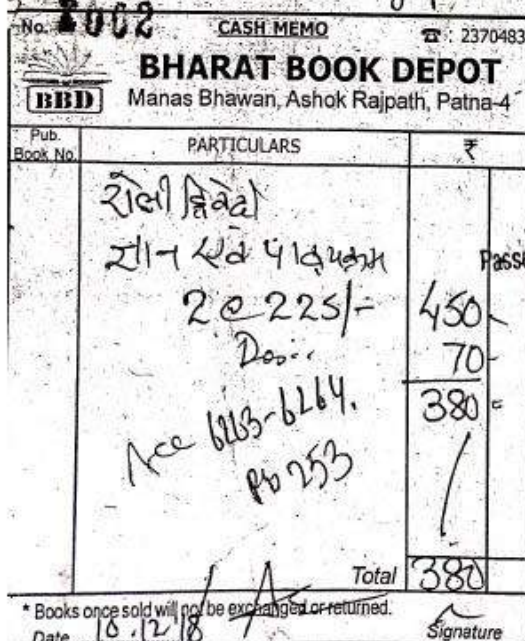 No. 2002 CASH MEMO ☎ : 2370483
BHARAT BOOK DEPOT
BBD Manas Bhawan, Ashok Rajpath, Patna-4
Pub. Book No. PARTICULARS ₹
शैली द्विवेदी
ज्ञान एवं पाठ्यक्रम
Pass
2 @ 225/- 450
Dis: 70
380
Acc 6263-6264.
PB 253
Total 380
* Books once sold will not be exchanged or returned.
Date 10.12.18 Signature